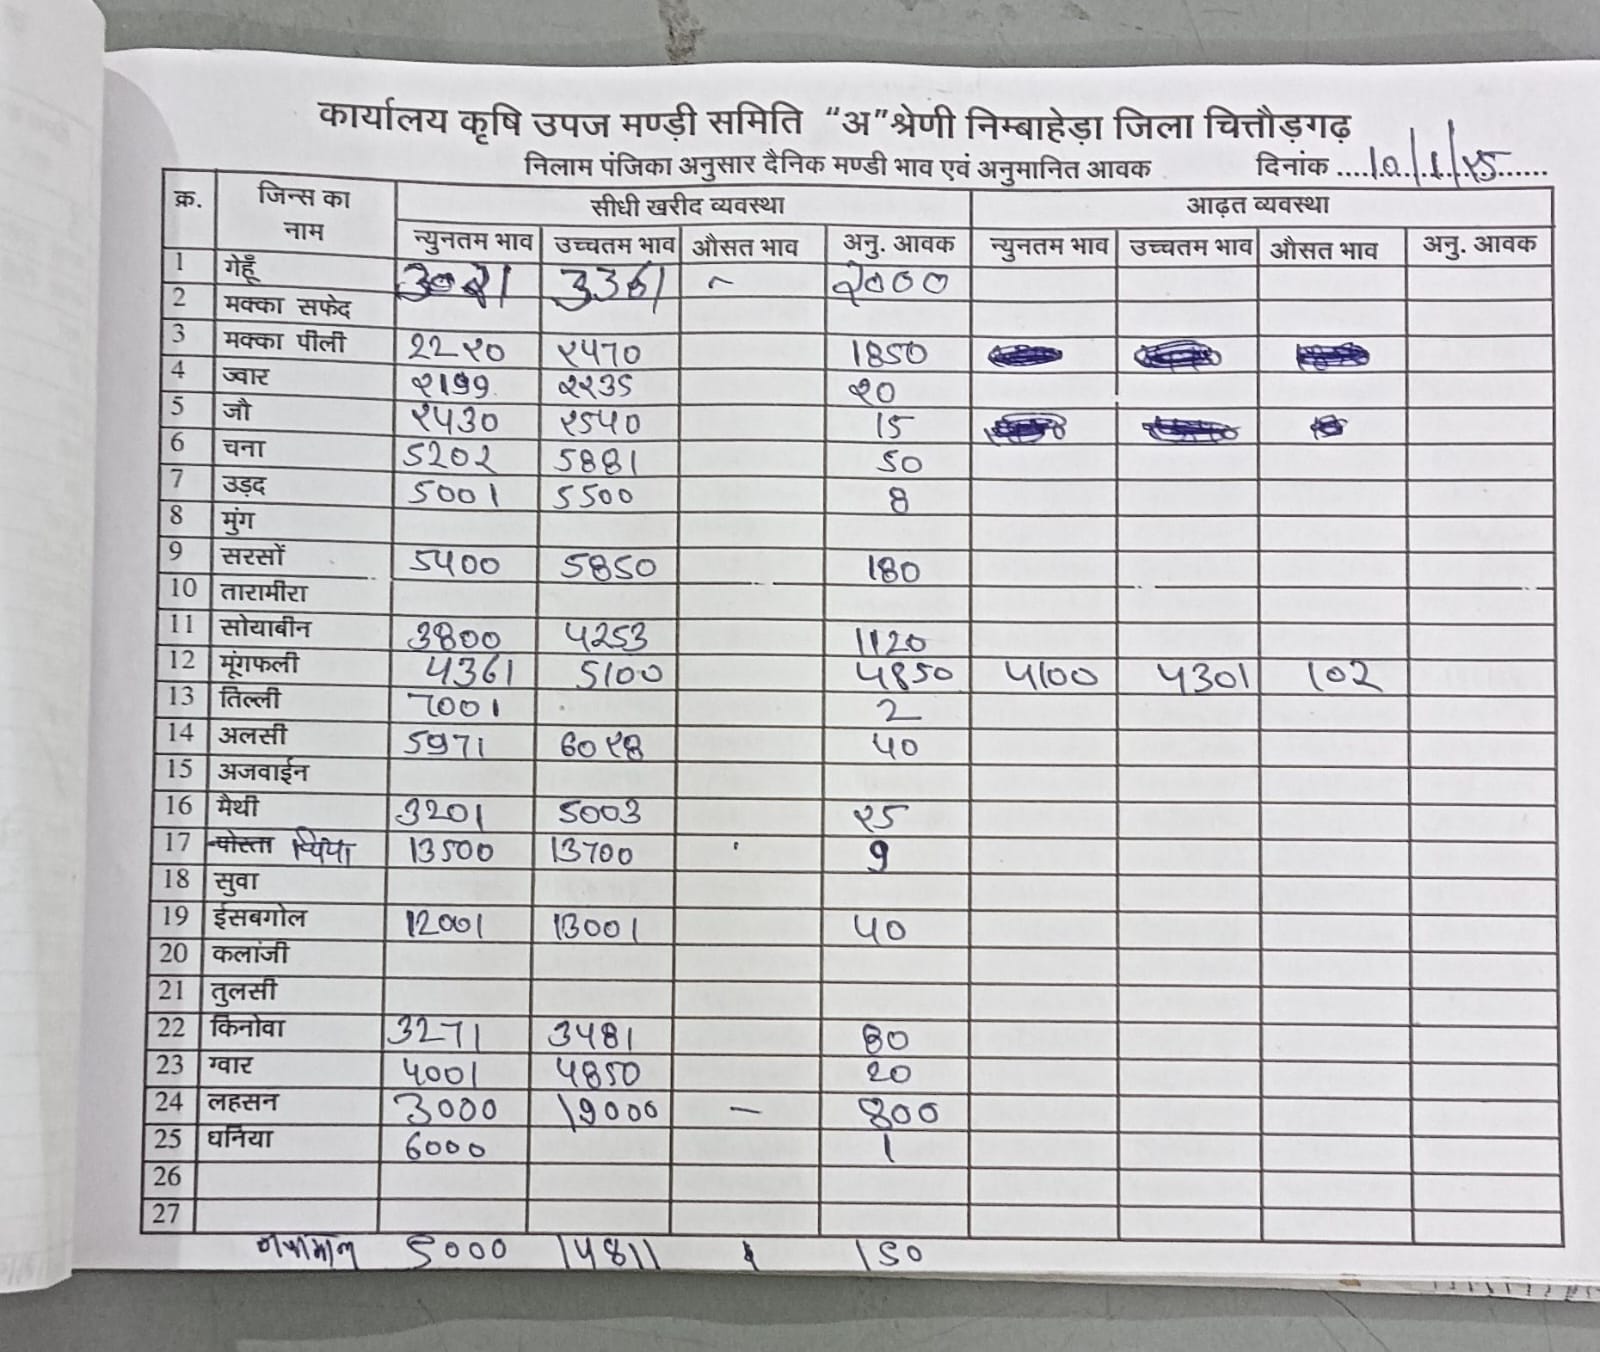 कार्यालय कृषि उपज मण्डी समिति “अ” श्रेणी निम्बाहेड़ा जिला चित्तौड़गढ़
निलाम पंजिका अनुसार दैनिक मण्डी भाव एवं अनुमानित आवक दिनांक ....10/1/२5......
क्र. जिन्स का नाम सीधी खरीद व्यवस्था आढ़त व्यवस्था
न्युनतम भाव उच्चतम भाव औसत भाव अनु. आवक न्युनतम भाव उच्चतम भाव औसत भाव अनु. आवक
1 गेहूँ 30२1 3361 ~ २000
2 मक्का सफेद
3 मक्का पीली 22२0 २५70 1850
4 ज्वार २199 २२35 २0
5 जौ २५30 २5५0 15
6 चना 520२ 5881 50
7 उड़द 5001 5500 8
8 मुंग
9 सरसों 5५00 5850 180
10 तारामीरा
11 सोयाबीन 3800 ५253 1120
12 मूंगफली ५361 5100 ५850 ५100 ५301 10२
13 तिल्ली 7001 2
14 अलसी 5971 60२8 ५0
15 अजवाईन
16 मैथी 3201 5003 २5
17 पोस्ता 13500 13700 9
18 सुवा
19 ईसबगोल 12001 13001 ५0
20 कलांजी
21 तुलसी
22 किनोवा 3271 3५81 80
23 ग्वार ५001 ५850 20
24 लहसन 3000 19000 — 800
25 धनिया 6000 1
26
27
5000 1५811 150